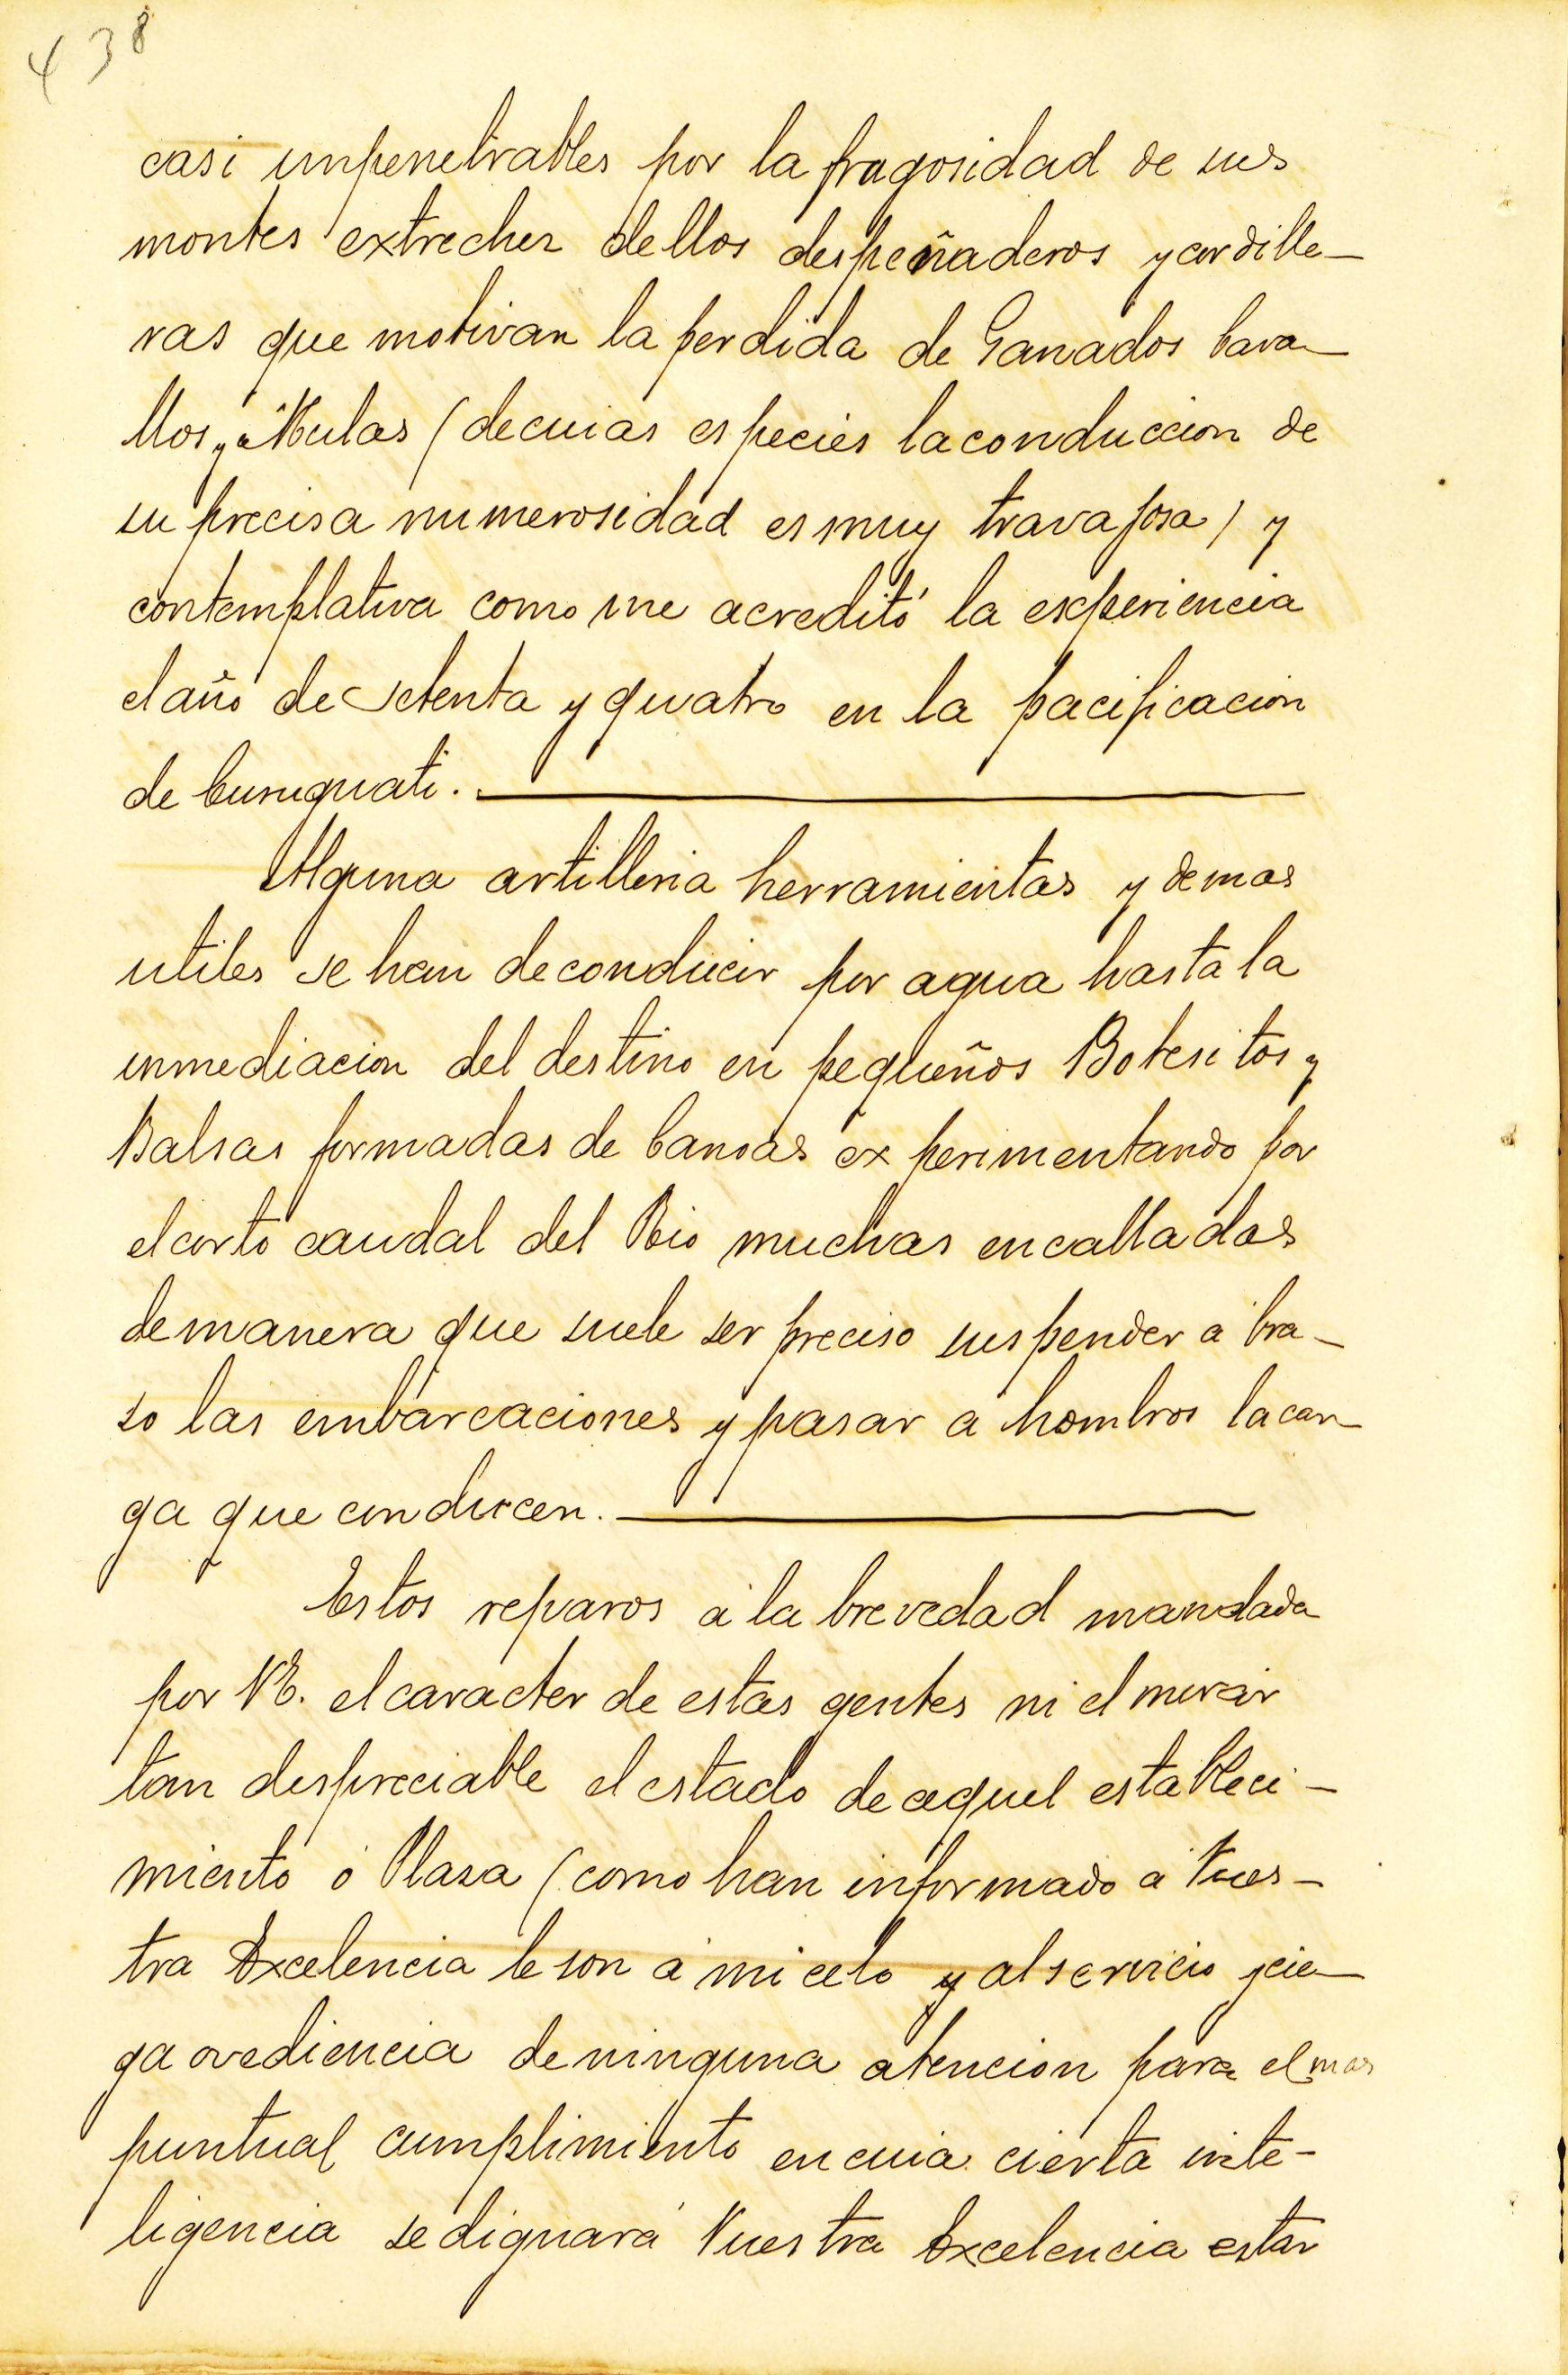 438
casi impenetrables por la fragosidad de sus
montes extrechez dellos despeñaderos y cordille-
ras que motivan la perdida de Ganados Cava-
llos y Mulas (de cuias especies la conduccion de
su precisa numerosidad es muy travajosa) y
contemplativa como me acreditó la experiencia
el año de setenta y quatro en la pacificacion
de Curuguati.
Alguna artilleria herramientas y demas
utiles se han de conducir por agua hasta la
inmediacion del destino en pequeños Botesitos y
Balsas formadas de Canoas experimentando por
el corto caudal del Rio muchas encalladas
de manera que suele ser preciso suspender á bra-
so las embarcaciones y pasar á hombros la car-
ga que conducen.
Estos reparos á la brevedad mandada
por V.E. el caracter de estas gentes ni el mirar
tan despreciable el estado de aquel estableci-
miento ó Plasa (como han informado á Vues-
tra Excelencia le son á mi celo y al servicio y cie-
ga ovediencia de ninguna atencion para el mas
puntual cumplimiento en cuia cierta inte-
ligencia se dignará Vuestra Excelencia estar